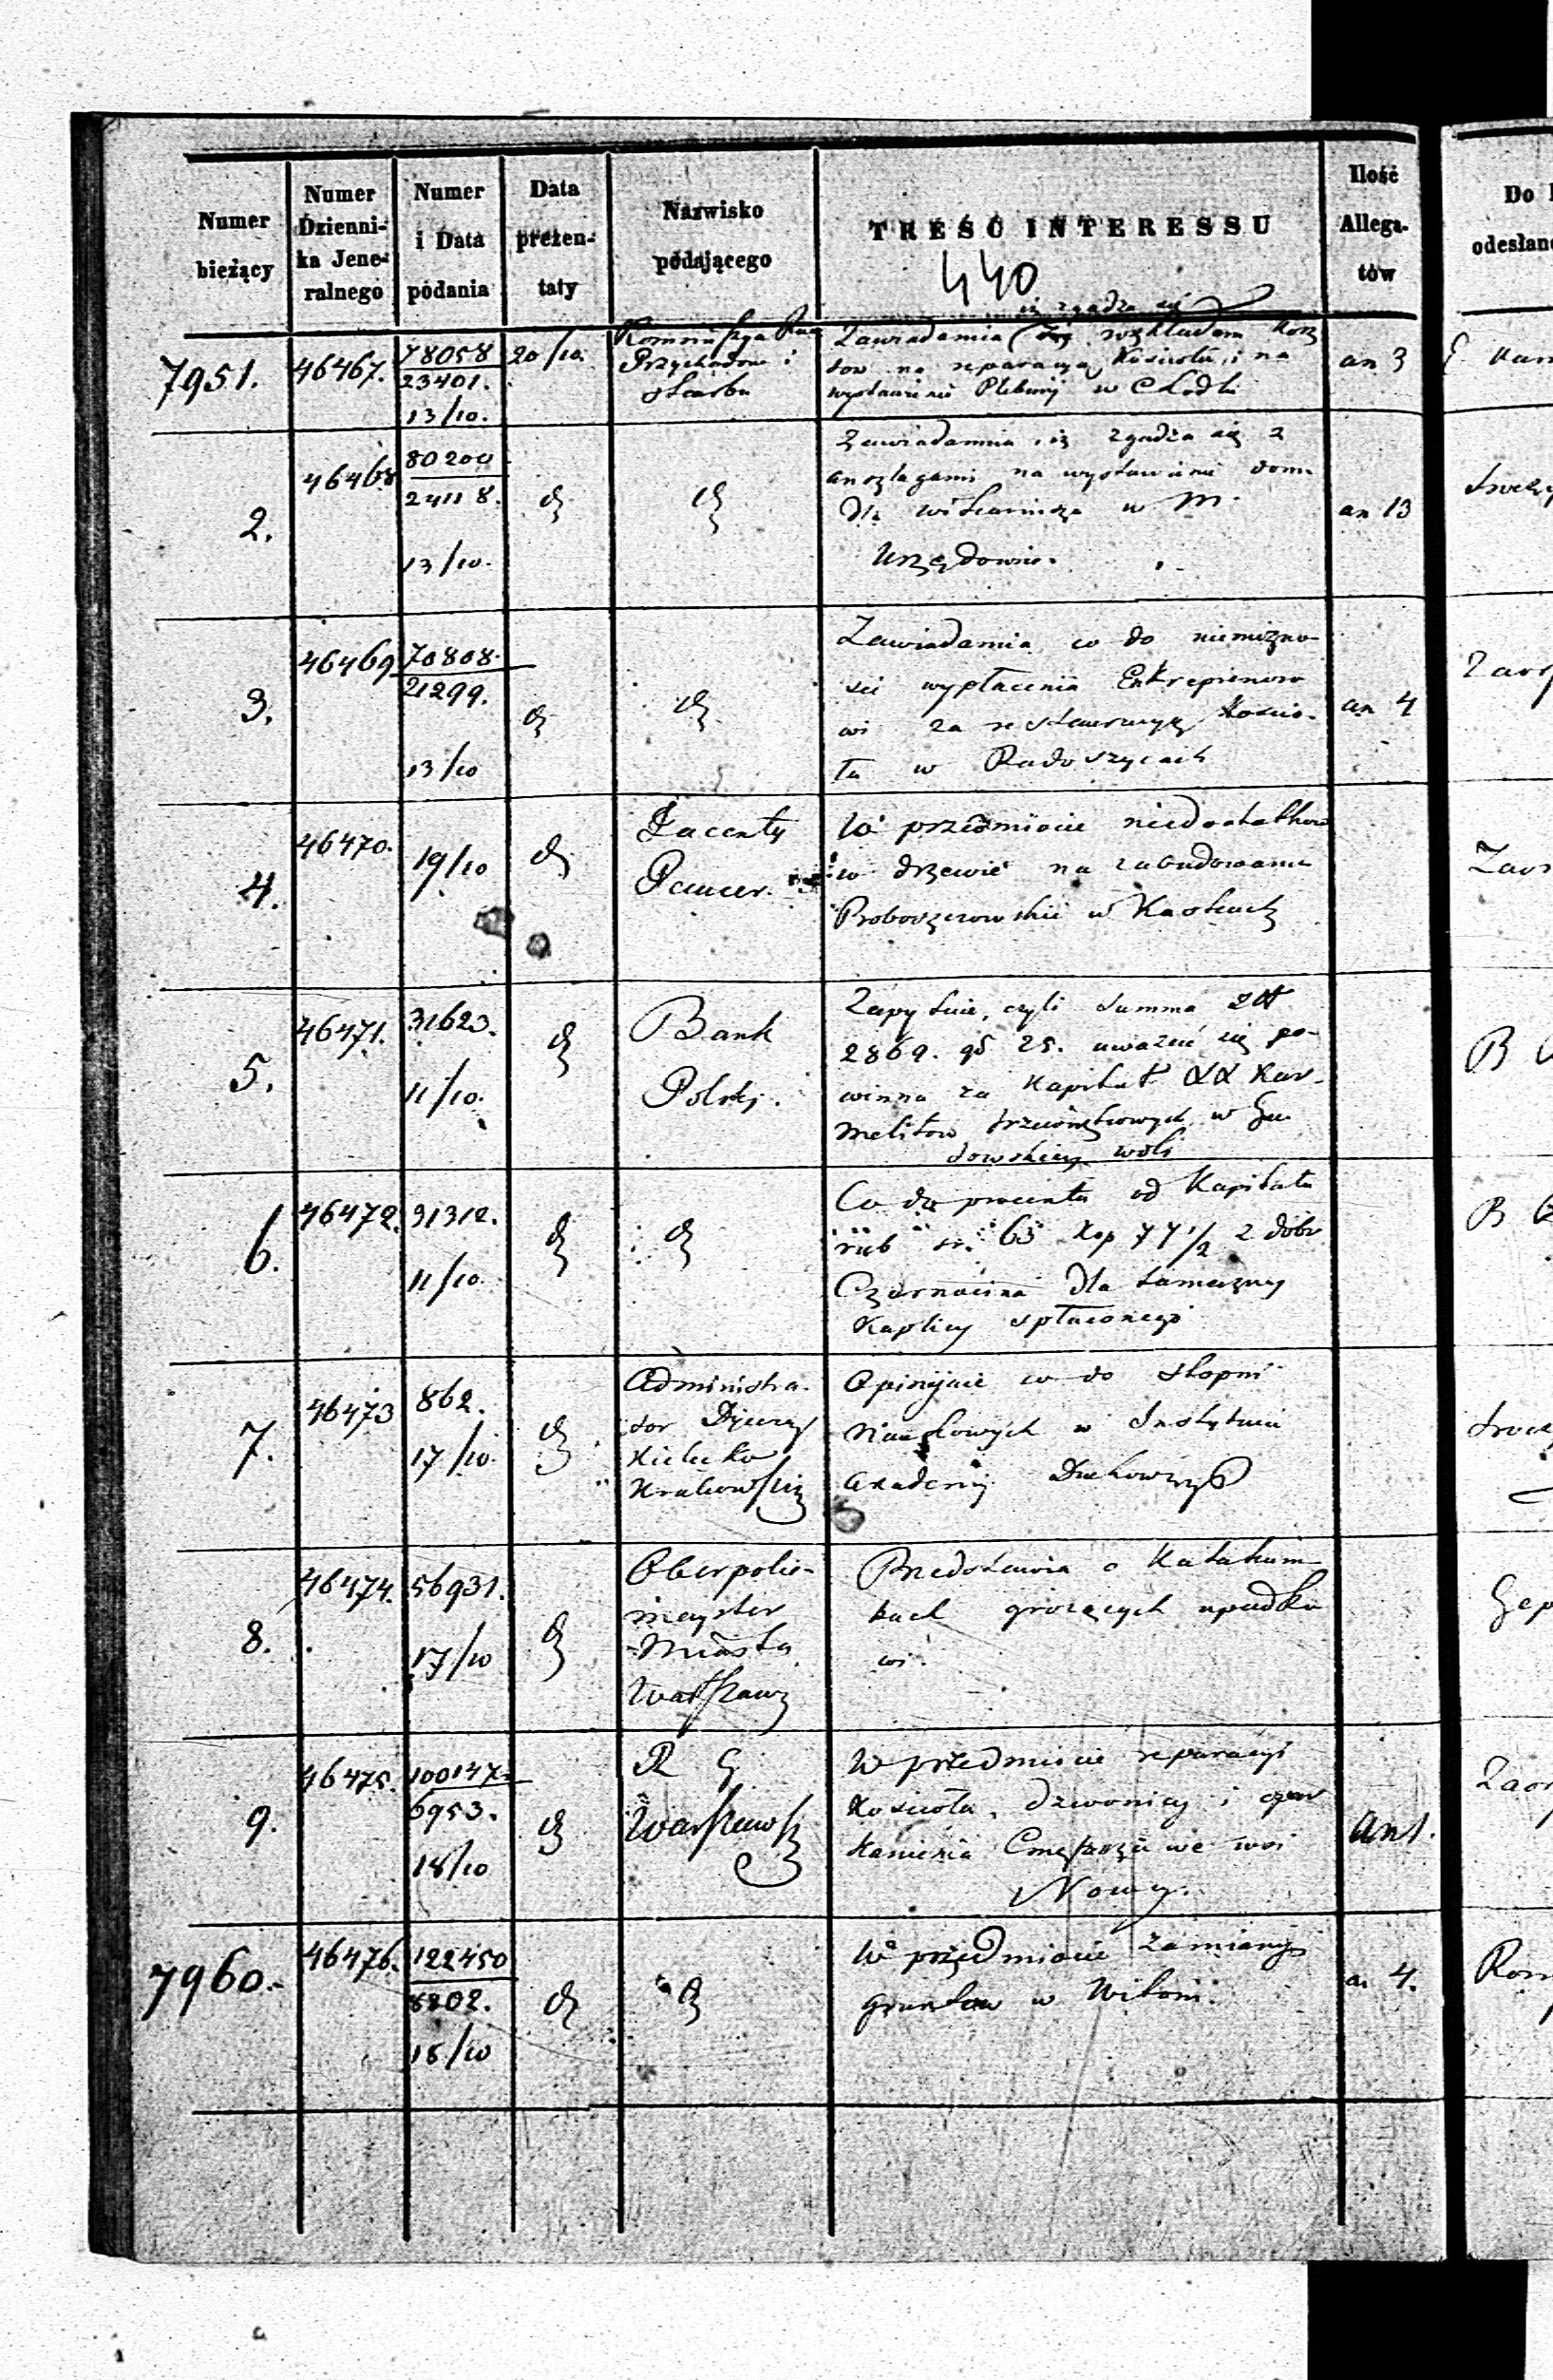 Numer
bieżący
Numer
Dzienni-
ka Jene-
ralnego
Numer
i Data
podania
Data
prezen-
taty
Nazwisko
podającego
TREŚĆ INTERESSU
440
Ilość
Allega-
tów
Do
odesłan
iż zgadza się
7951. 46467. 78058 20/10.
23401.
13/10.
Przychodow i
Skarbu
Zawiadamia rozkładem Kosz
tow na reparacyą Kościoła i na
wystawienie Plebanij w Chodlu
an 3
2. 46468 80200
24118.
13/10.
Zawiadamia, iż zgadza się z
anszlagami na wystawienie domu
dla wikariusza w m.
Urzędowie.
an 13
3. 46469 70808.
21299.
13/10
Zawiadamia co do niemożno-
ści wypłacenia Entreprenero
wi za restauracyę Kościo-
ła w Radoszycach
an 4
4. 46470. 19/10
Jacenty
Pancer.
W przedmiocie niedostatków
w drzewie na zabudowania
Proboszczowskie w
5. 46471. 31623.
11/10.
Bank
Polski.
Zapytuie, czyli Summa Złt
2869. gr 25. uważać się po-
winna za Kapitał XX Kar-
melitow trzewiczkowych w
woli
6. 46472. 31312.
11/10.
Co do procentu od Kapitału
rub sr. 65 kop 77 1/2 z dobr
Czarnocina dla tamecznej
Kaplicy spłaconego
7. 46473 862.
17/10.
Administra-
tor Dyecezyi
Kielecko
Krakowskiej
Opinijuie co do stopni
Naukowych w
Akademij Duchownej
8. 46474. 56931.
17/10
Oberpolic-
mayster
Miasta
Warszawy
Przedstawia o Katakum-
bach grożących upadko
wi.
9. 46475. 100147.
6953.
18/10
R G
Warszawski
W przedmiocie reparacyi
Kościoła, dzwonicy i opar
kanienia Cmętarza we wsi
Nowey.
an 1.
7960. 46476. 122450
8802.
18/10
W przedmiocie zamiany
gruntow w Witoni.
a. 4.